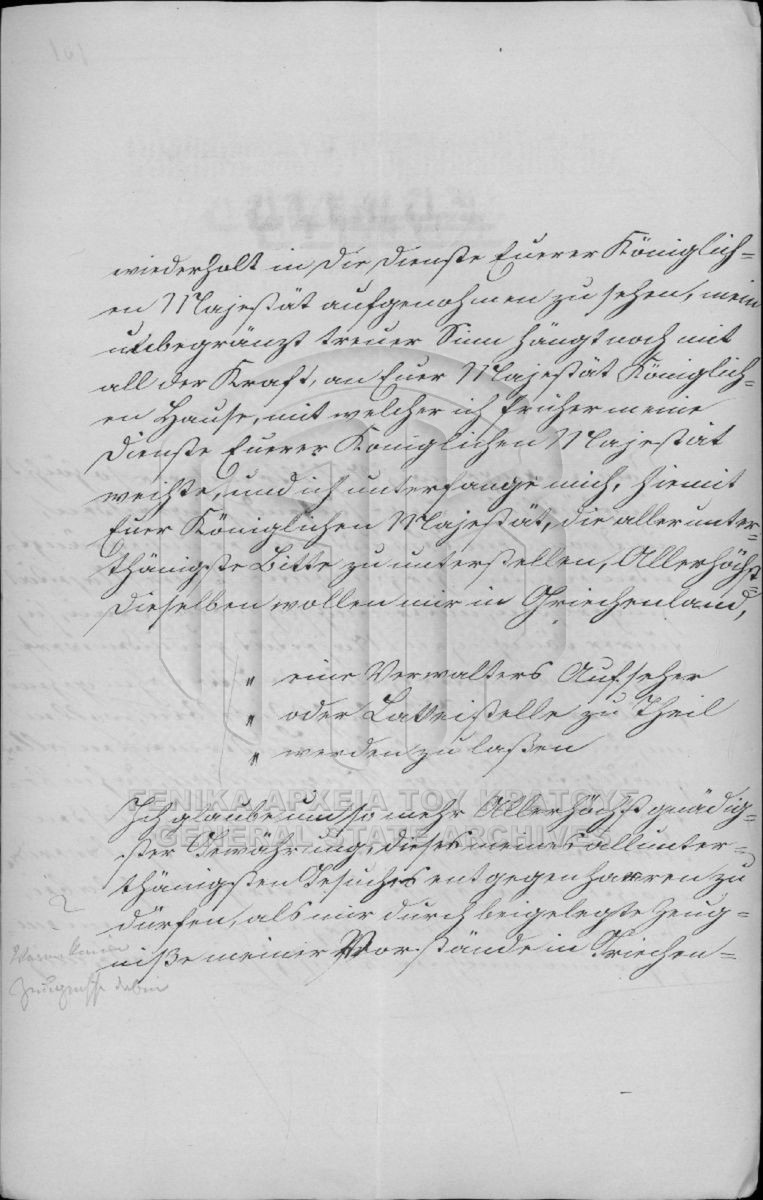 wiederholt in die Dienste Euerer Königlich=
en Majestät aufgenohmen zu sehen, mein
unbegränzt treuer Sinn hängt noch mit
all der Kraft, an Euer Majestät Königlich=
en Hause, mit welcher ich früher meine
Dienste Euerer Königlichen Majestät
weihte, und ich unterfange mich, hiemit
Euer Königlichen Majestät, die allerunter=
thänigste Bitte zu unterstellen, Allerhöchst=
Dieselben wollen mir in Griechenland,
" eine Verwalters Aufseher
" oder stelle zu Theil
" werden zu laßen
ΓΕΝΙΚΑ ΑΡΧΕΙΑ ΤΟΥ ΚΡΑΤΟΥΣ
GENERAL STATE ARCHIVES
Ich glaube um so mehr Allerhöchst gnädig=
ster Gewährung, dieses meines allunter=
thänigsten Gesuches entgegenharren zu
dürfen, als mir durch beigelegte Zeug=
niße meiner Vorstände in Griechen=
Zeugnisse dabei